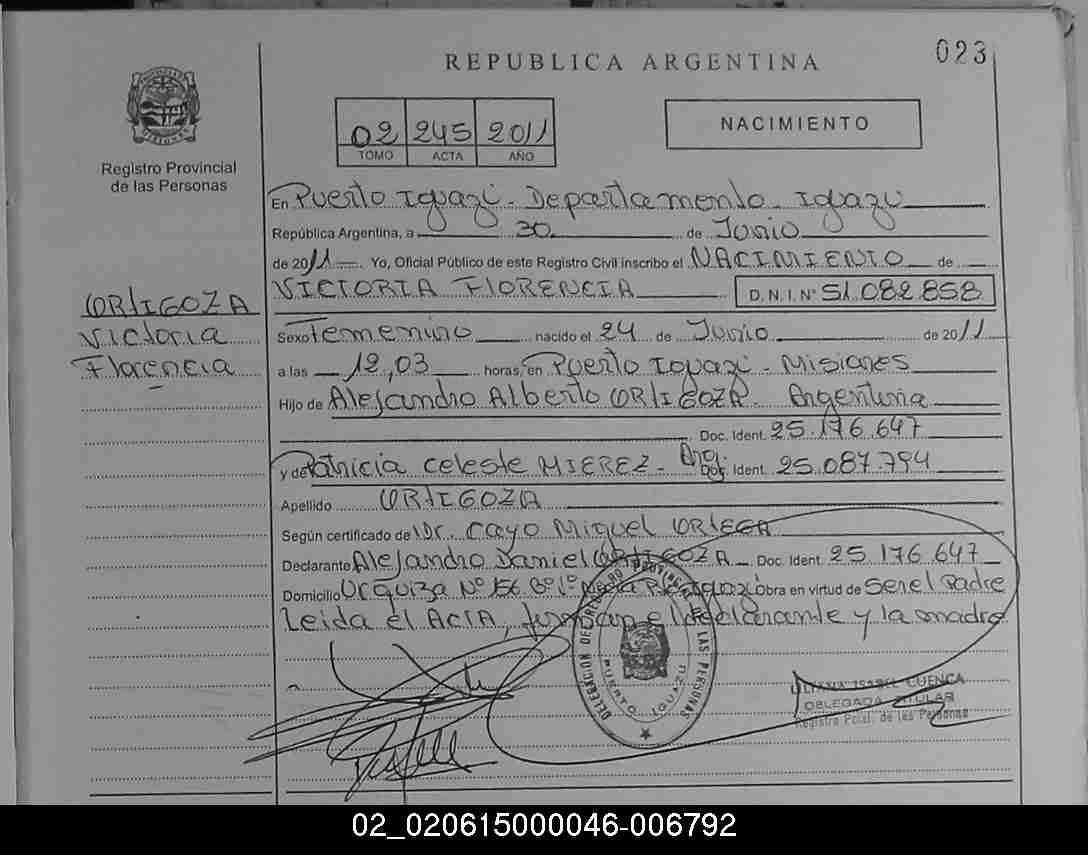 023
REPUBLICA ARGENTINA
PROVINCIA DE
MISIONES
Registro Provincial
de las Personas
02 245 2011
TOMO ACTA AÑO
NACIMIENTO
En Puerto Iguazú - Departamento Iguazú
República Argentina, a 30 de Junio
de 2011 Yo, Oficial Público de este Registro Civil inscribo el NACIMIENTO de
VICTORIA FLORENCIA D.N.I. Nº 51.082.858
ORTIGOZA
Victoria
Florencia
Sexo Femenino nacido el 24 de Junio de 2011
a las 12,03 horas, en Puerto Iguazú - Misiones
Hijo de Alejandro Alberto ORTIGOZA - Argentina
Doc. Ident. 25.176.647
y de Patricia Celeste MIEREZ - Arg. Doc. Ident. 25.087.794
Apellido ORTIGOZA
Según certificado de Dr. Cayo Miguel ORTEGA
Declarante Alejandro Daniel ORTIGOZA Doc. Ident. 25.176.647
Domicilio Urquiza Nº 156 Bº 1º Iguazú obra en virtud de Ser el Padre
Leida el ACTA, firman el declarante y la madre
DELEGACION DEL REGISTRO PROVINCIAL DE LAS PERSONAS
PUERTO IGUAZU
LILIANA ISABEL CUENCA
DELEGADA TITULAR
Registro Pcial. de las Personas
02_020615000046-006792